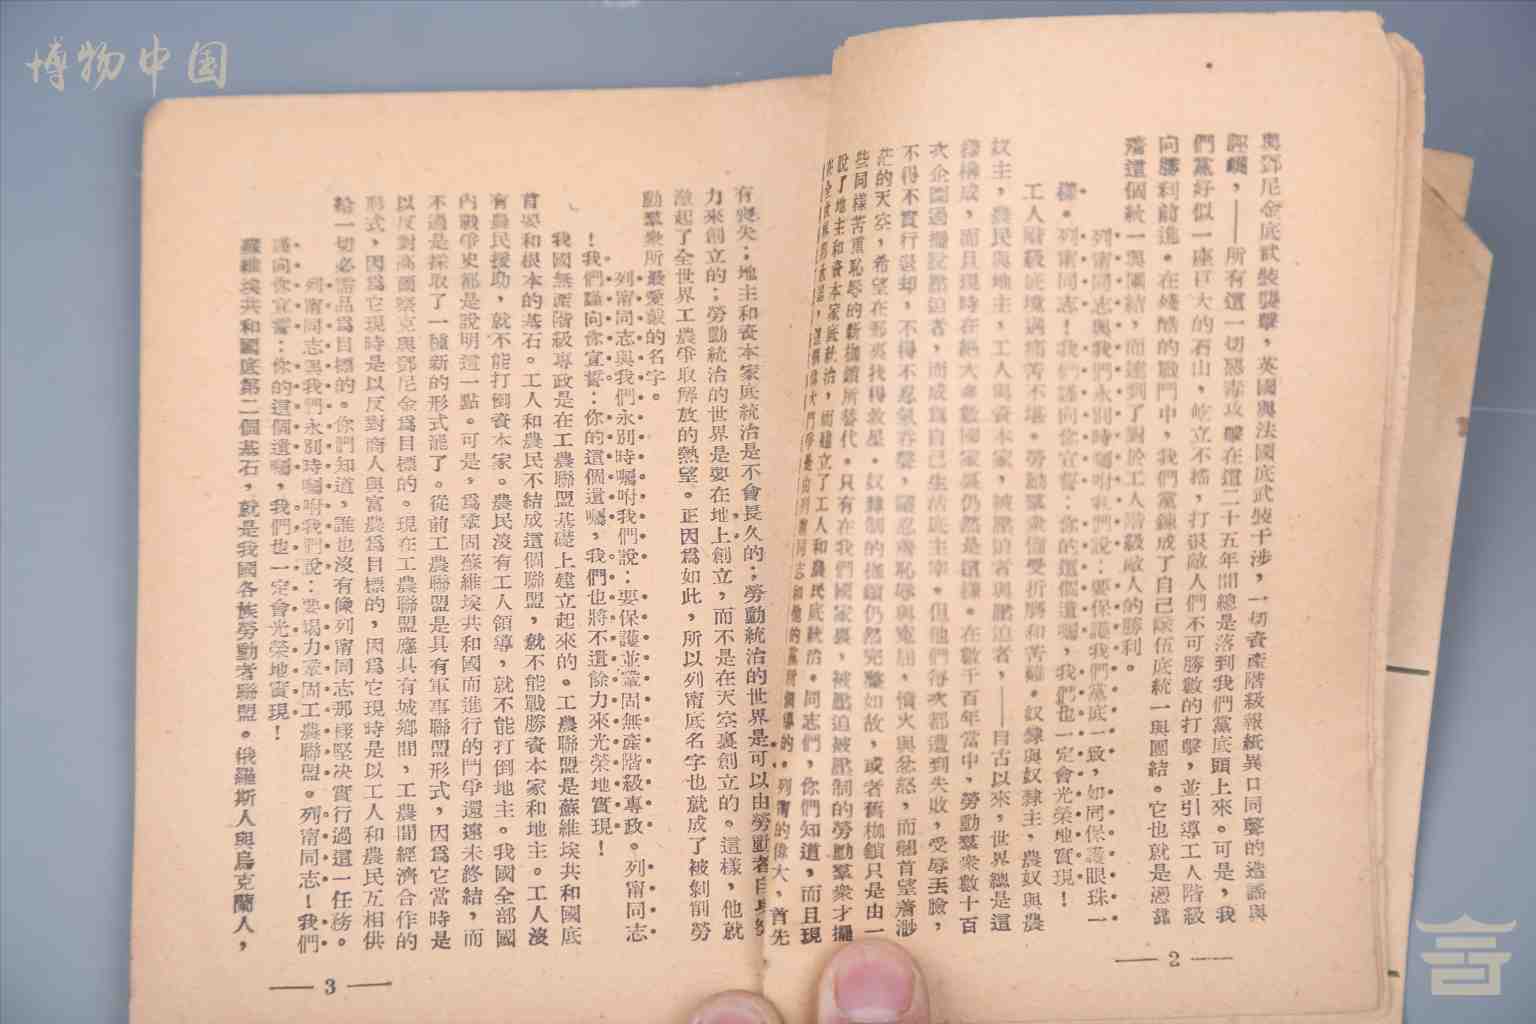 博物中国
與鄧尼金底武裝襲擊,英國與法國底武裝干涉,一切資產階級報紙異口同聲的造謠與
誣衊,——所有這一切惡毒攻擊在這二十五年間總是落到我們黨底頭上來。可是,我
們黨好似一座巨大的石山,屹立不搖,打退敵人們不可勝數的打擊,並引導工人階級
向勝利前進。在殘酷的戰鬥中,我們黨鍊成了自己隊伍底統一與團結。它也就是憑靠
著這個統一與團結,而達到了對於工人階級敵人的勝利。
列甯同志與我們永別時囑咐我們說:要保護我們黨底一致,如同保護眼珠一
樣。列甯同志!我們謹向你宣誓:你的這個遺囑,我們也一定會光榮地實現!
工人階級底境遇痛苦不堪。勞動羣衆備受折磨和苦難。奴隸與奴隸主,農奴與農
奴主,農民與地主,工人與資本家,被壓迫者與壓迫者,——自古以來,世界總是這
樣構成,而且現時在絕大多數國家裏仍然是這樣。在數千百年當中,勞動羣衆數十百
次企圖過擺脫壓迫者,而成爲自己生活底主宰。但他們每次都遭到失敗,受辱丟臉,
不得不實行退却,不得不忍氣吞聲,隱忍着恥辱與寃屈,憤火與忿怒,而翹首望着渺
茫的天空,希望在那裏找得救星。奴隸制的枷鎖仍然完整如故,或者舊枷鎖只是由一
些同樣苦重恥辱的新枷鎖所替代。只有在我們國家裏,被壓迫被壓制的勞動羣衆才擺
脫了地主和資本家底統治,而建立了工人和農民底統治。同志們,你們知道,而且現
由列甯同志和他的黨所領導的。列甯的偉大,首先
— 2 —
有喪失;地主和資本家底統治是不會長久的;勞動統治的世界是可以由勞動者自身努
力來創立的;勞動統治的世界是要在地上創立,而不是在天空裏創立的。這樣,他就
激起了全世界工農爭取解放的熱望。正因爲如此,所以列甯底名字也就成了被剝削勞
動羣衆所最愛戴的名字。
列甯同志與我們永別時囑咐我們說:要保護並鞏固無產階級專政。列甯同志
!我們謹向你宣誓:你的這個遺囑,我們也將不遺餘力來光榮地實現!
我國無產階級專政是在工農聯盟基礎上建立起來的。工農聯盟是蘇維埃共和國底
首要和根本的基石。工人和農民不結成這個聯盟,就不能戰勝資本家和地主。工人沒
有農民援助,就不能打倒資本家。農民沒有工人領導,就不能打倒地主。我國全部國
內戰爭史都是說明這一點。可是,爲鞏固蘇維埃共和國而進行的鬥爭還遠未終結,而
不過是採取了一種新的形式罷了。從前工農聯盟是具有軍事聯盟形式,因爲它當時是
以反對高爾察克與鄧尼金爲目標的。現在工農聯盟應具有城鄉間,工農間經濟合作的
形式,因爲它現時是以反對商人與富農爲目標的,因爲它現時是以工人和農民互相供
給一切必需品爲目標的。你們知道,誰也沒有像列甯同志那樣堅決實行過這一任務。
列甯同志與我們永別時囑咐我們說:要竭力鞏固工農聯盟。列甯同志!我們
謹向你宣誓:你的這個遺囑,我們也一定會光榮地實現!
蘇維埃共和國底第二個基石,就是我國各族勞動者聯盟。俄羅斯人與烏克蘭人,
— 3 —